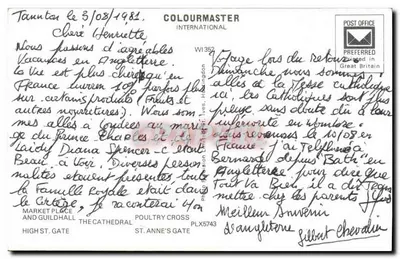 Taunton le 3/08/1981.
COLOURMASTER
INTERNATIONAL
POST OFFICE
PREFERRED
Great Britain
Chère Henriette
WI 362
Nous passons d'agréables
Vacances en Angleterre.
La Vie est plus chère qu'en
France environ 10% parfois plus
sur certains produits (Fruits et
autres nourritures). Nous som-
mes allés à Londres au maria-
ge du Prince Charles et de
Laidy Diana Spencer - C'était
Beau à Voir, Diverses person
nalités étaient présentes, toute
la Famille Royale était dans
le Cortège, je raconterai Mon
Voyage lors du retour.
Dimanche nous sommes
allés à la Messe Catholique
ici, les Catholiques sont plus
sans doute dû à leur
infériorité en nombre.
le 10/08 en
France. J'ai Téléphoné à
Bernard depuis "Bath" en
Angleterre pour dire que
Tout Va Bien, il a dit
mettre chez les parents
Meilleur Souvenir
d'angleterre
Gilbert Chevalin
MARKET PLACE
AND GUILDHALL
THE CATHEDRAL
POULTRY CROSS
PLX5743
HIGH ST. GATE
ST. ANNE'S GATE